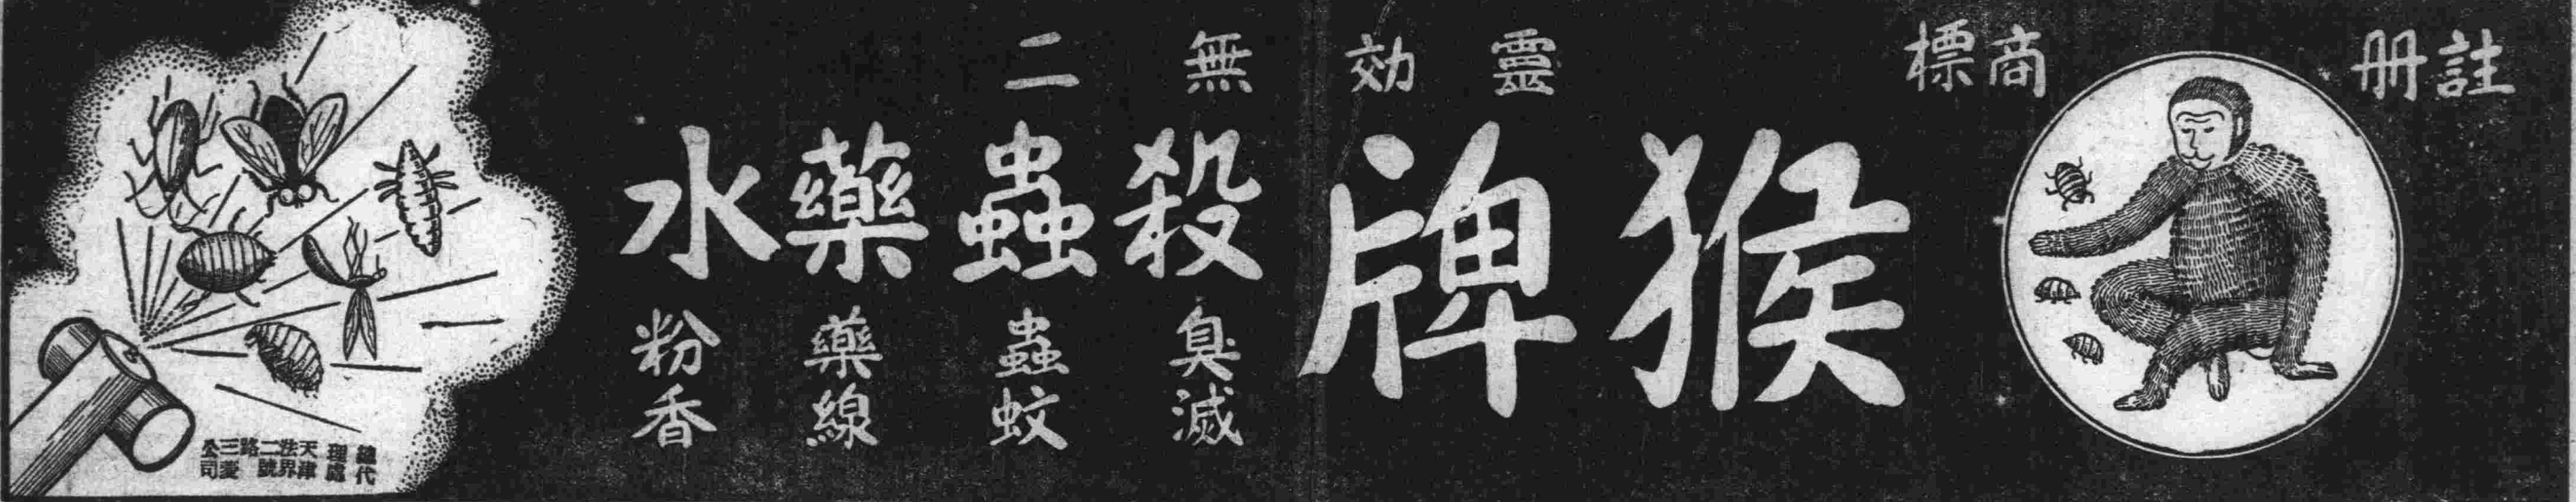 註冊商標
靈効無二
猴牌
殺蟲藥水
臭蟲藥粉
滅蚊線香
總代理處
天津法界二號路三愛公司